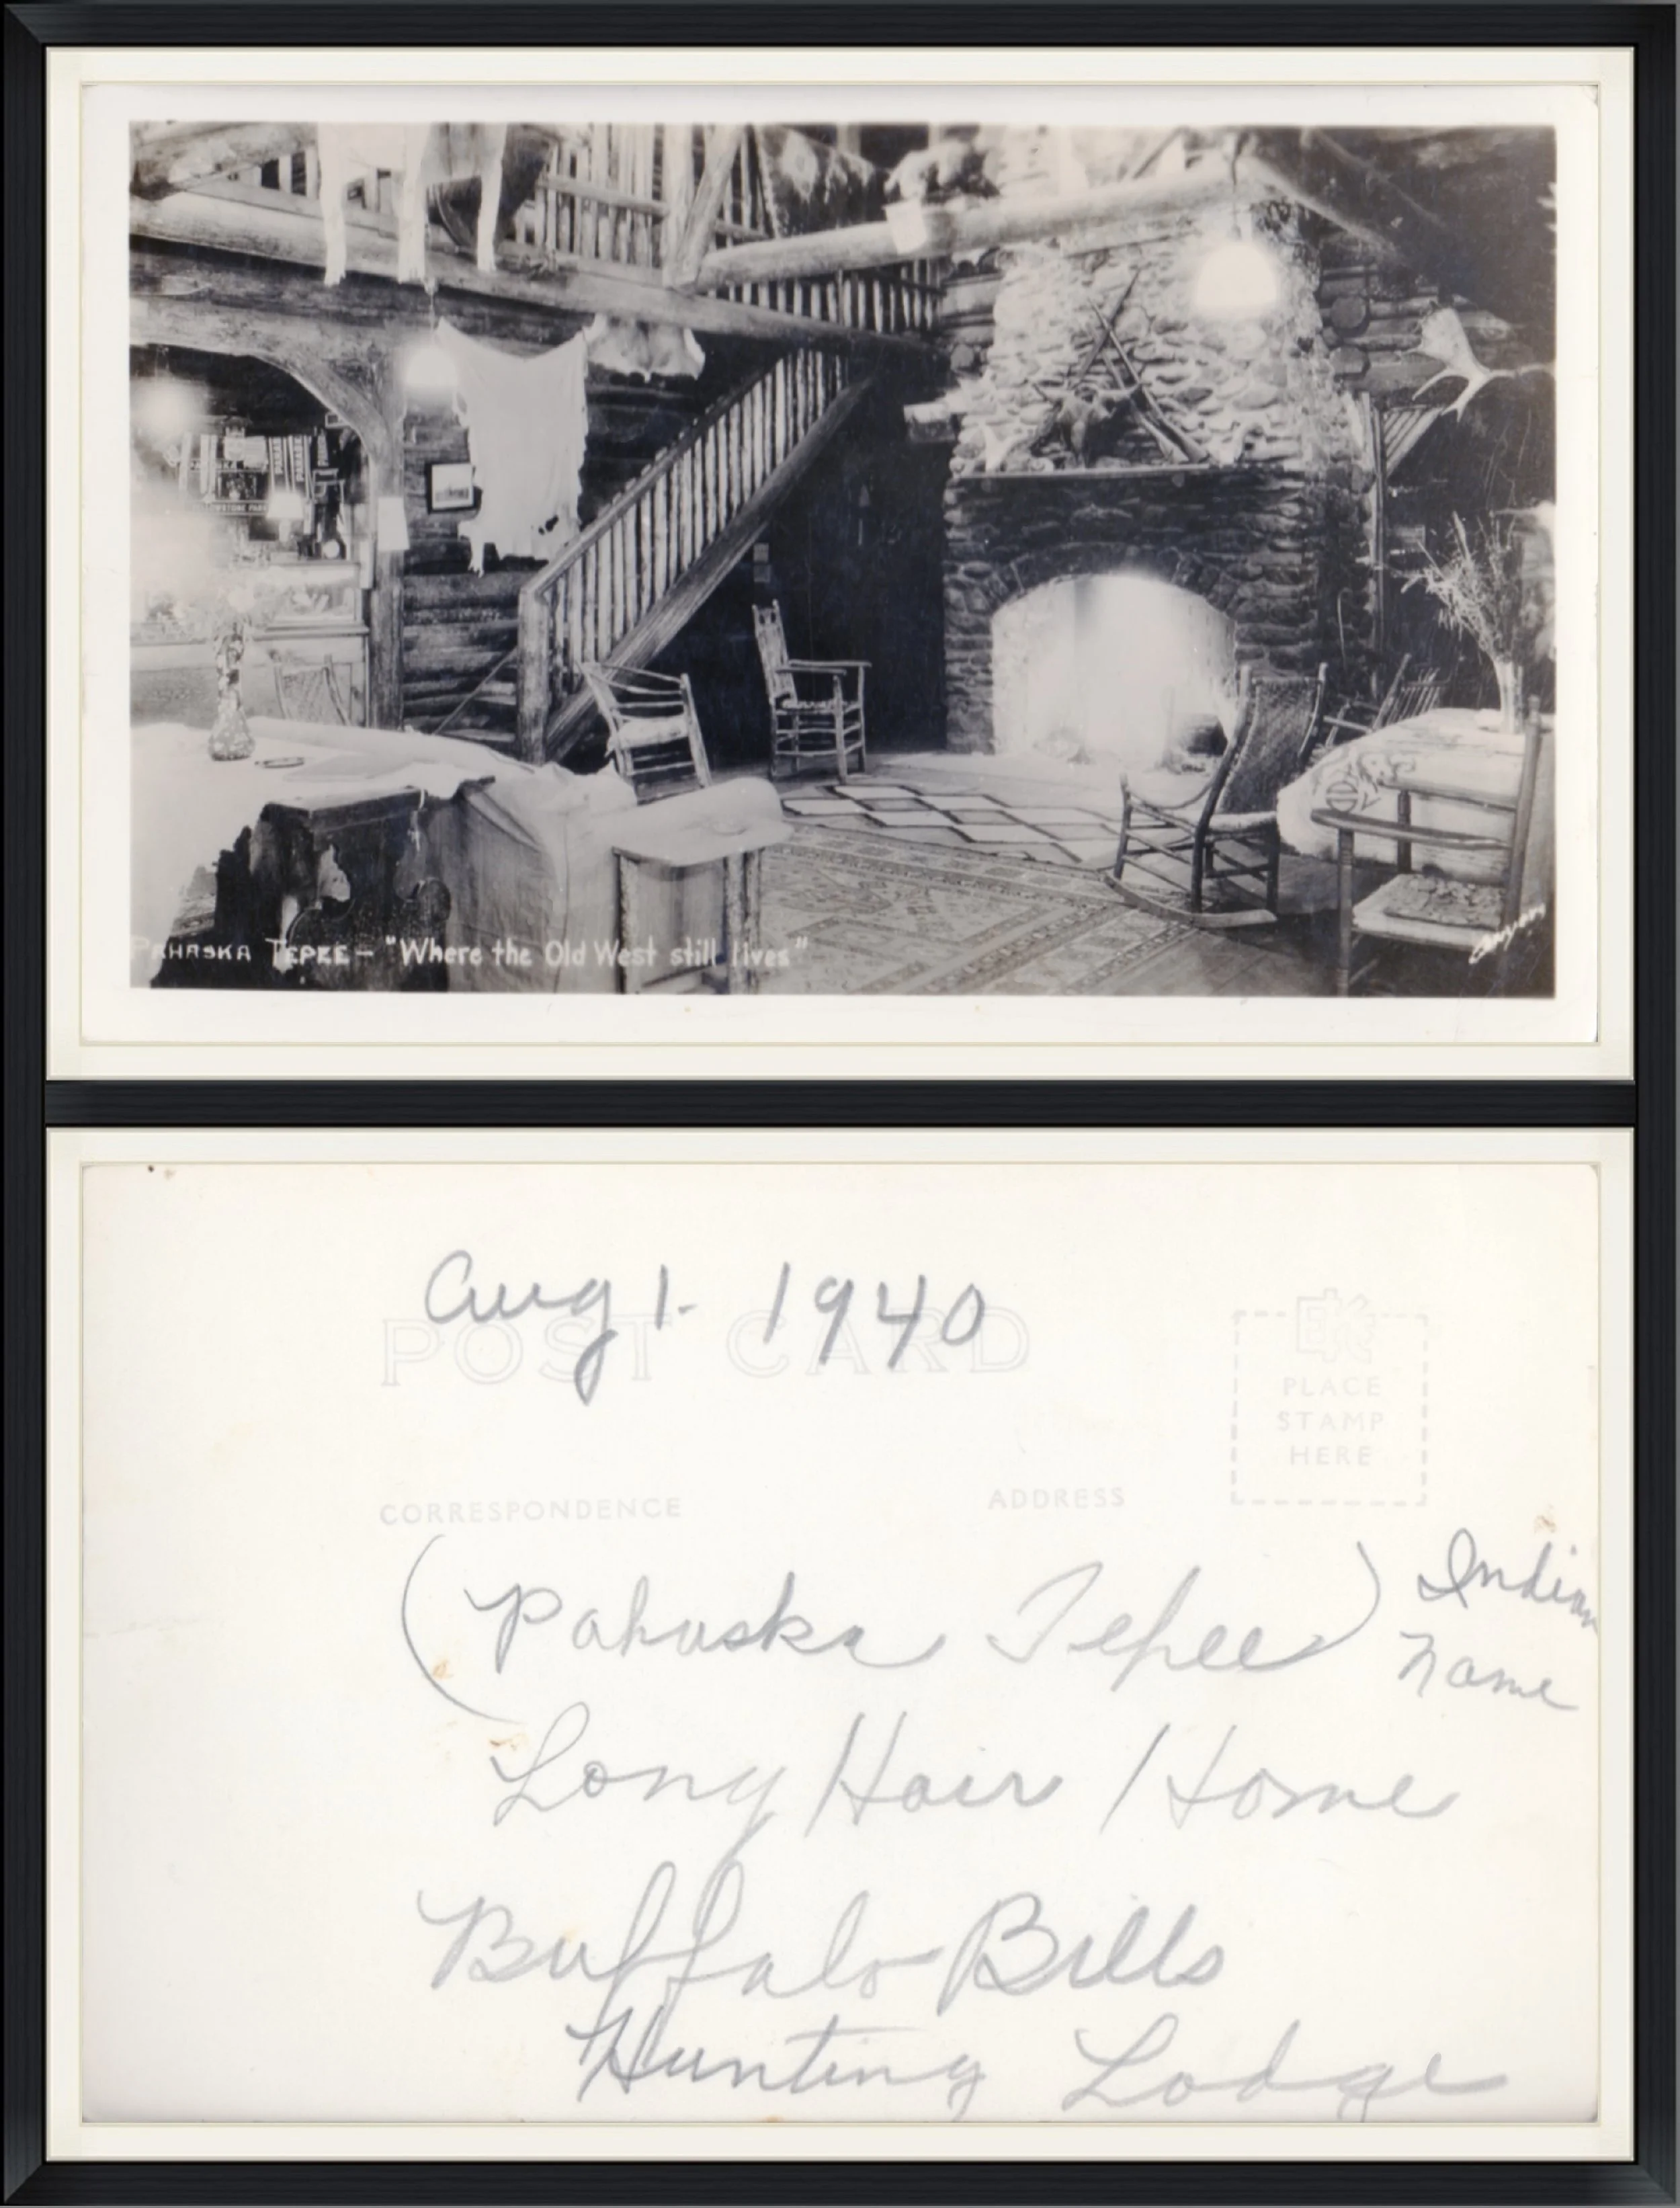 YELLOWSTONE PARK
PAHASKA TEPEE — "Where the Old West still lives"
Aug 1. 1940
POST CARD
EKC
PLACE
STAMP
HERE
CORRESPONDENCE
ADDRESS
(Pahaska Tepee) Indian
Name
Long Hair Home
Buffalo Bills
Hunting Lodge